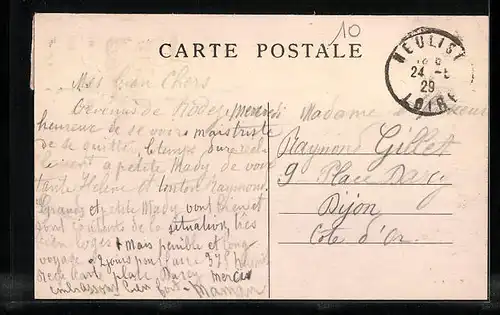 10
CARTE POSTALE
NEULISE
24 - 5
29
LOIRE
Mes bien Chers
Revenus de Rodez, mercredi
heureux de se voir, mais triste
de se quitter. Le temps dure
a petite Mady de voir
tante Hélène et tonton Raymond.
Grande et petite Mady vont bien et
sont de la situation très
bien logés, mais penible et long
voyage 2 jours pour faire 375
plate Darcy merci
embrassons bien fort - Maman
Madame
Raymond Gillet
9 Place Darcy
Dijon
Côte d'Or